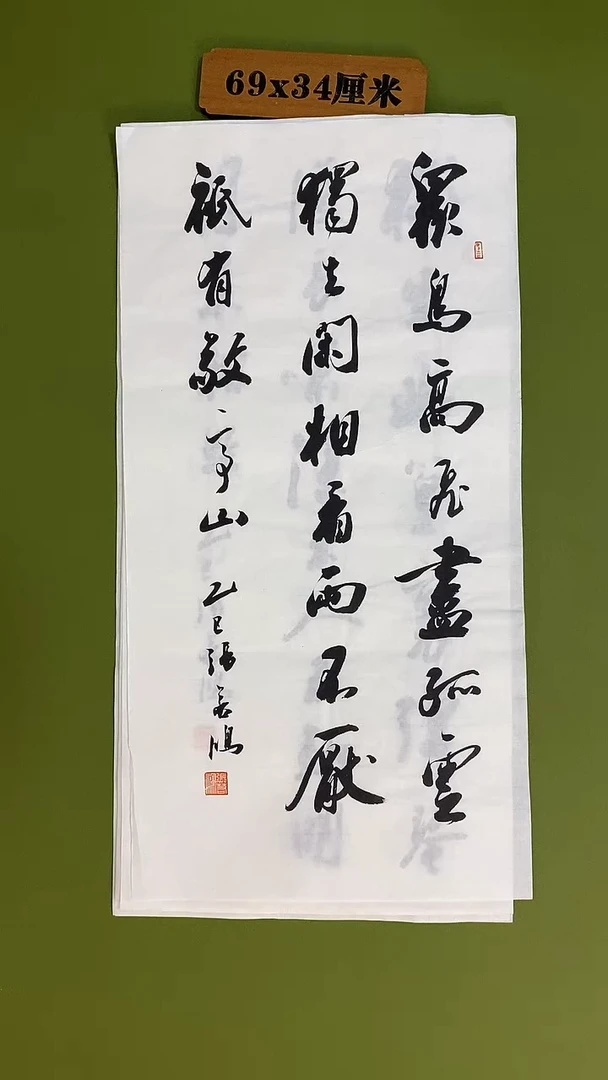 69x34厘米
衆鳥高飛盡孤雲
獨去閑相看兩不厭
祗有敬亭山
乙巳張鴻